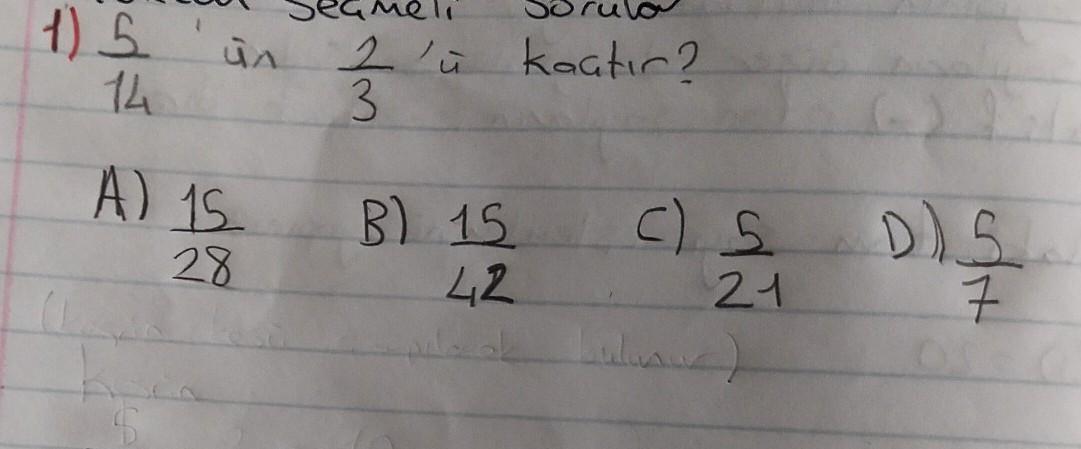 Seçmeli Sorular
1) 5/14 'ün 2/3 'ü kaçtır?
A) 15/28 B) 15/42 C) 5/21 D) 5/7